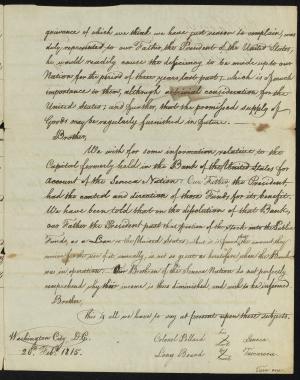 grievance of which we think we have just reason to complain, was
duly represented to our Father, the President of the United States,
he would readily cause the deficiency to be made up to our
Nation for the period of three years last past; which is of much
importance to them, although of small consideration for the
United States; and further, that the promised supply of
Goods may be regularly furnished in future.
Brother,
We wish for some information, relative to the
Capitol formerly held in the Bank of the United States for
account of the Seneca Nation. Our Father, the President,
had the control and direction of those Funds for its benefit.
We have been told that on the dissolution of that Bank,
our Father the President part this portion of the stock into the Public
Funds, as a Loan to the United States,
is not as great as heretofore when the Bank
was in operation. Our Brothers of the Seneca Nation do not perfectly
comprehend why their income is thus diminished, and wish to be informed
Brother,
This is all we have to say at present upon these subjects.
Washington City D.C.
20th Feby. 1815.
Colonel Pollard for Seneca
Long Board for Tuscarora
Turn over